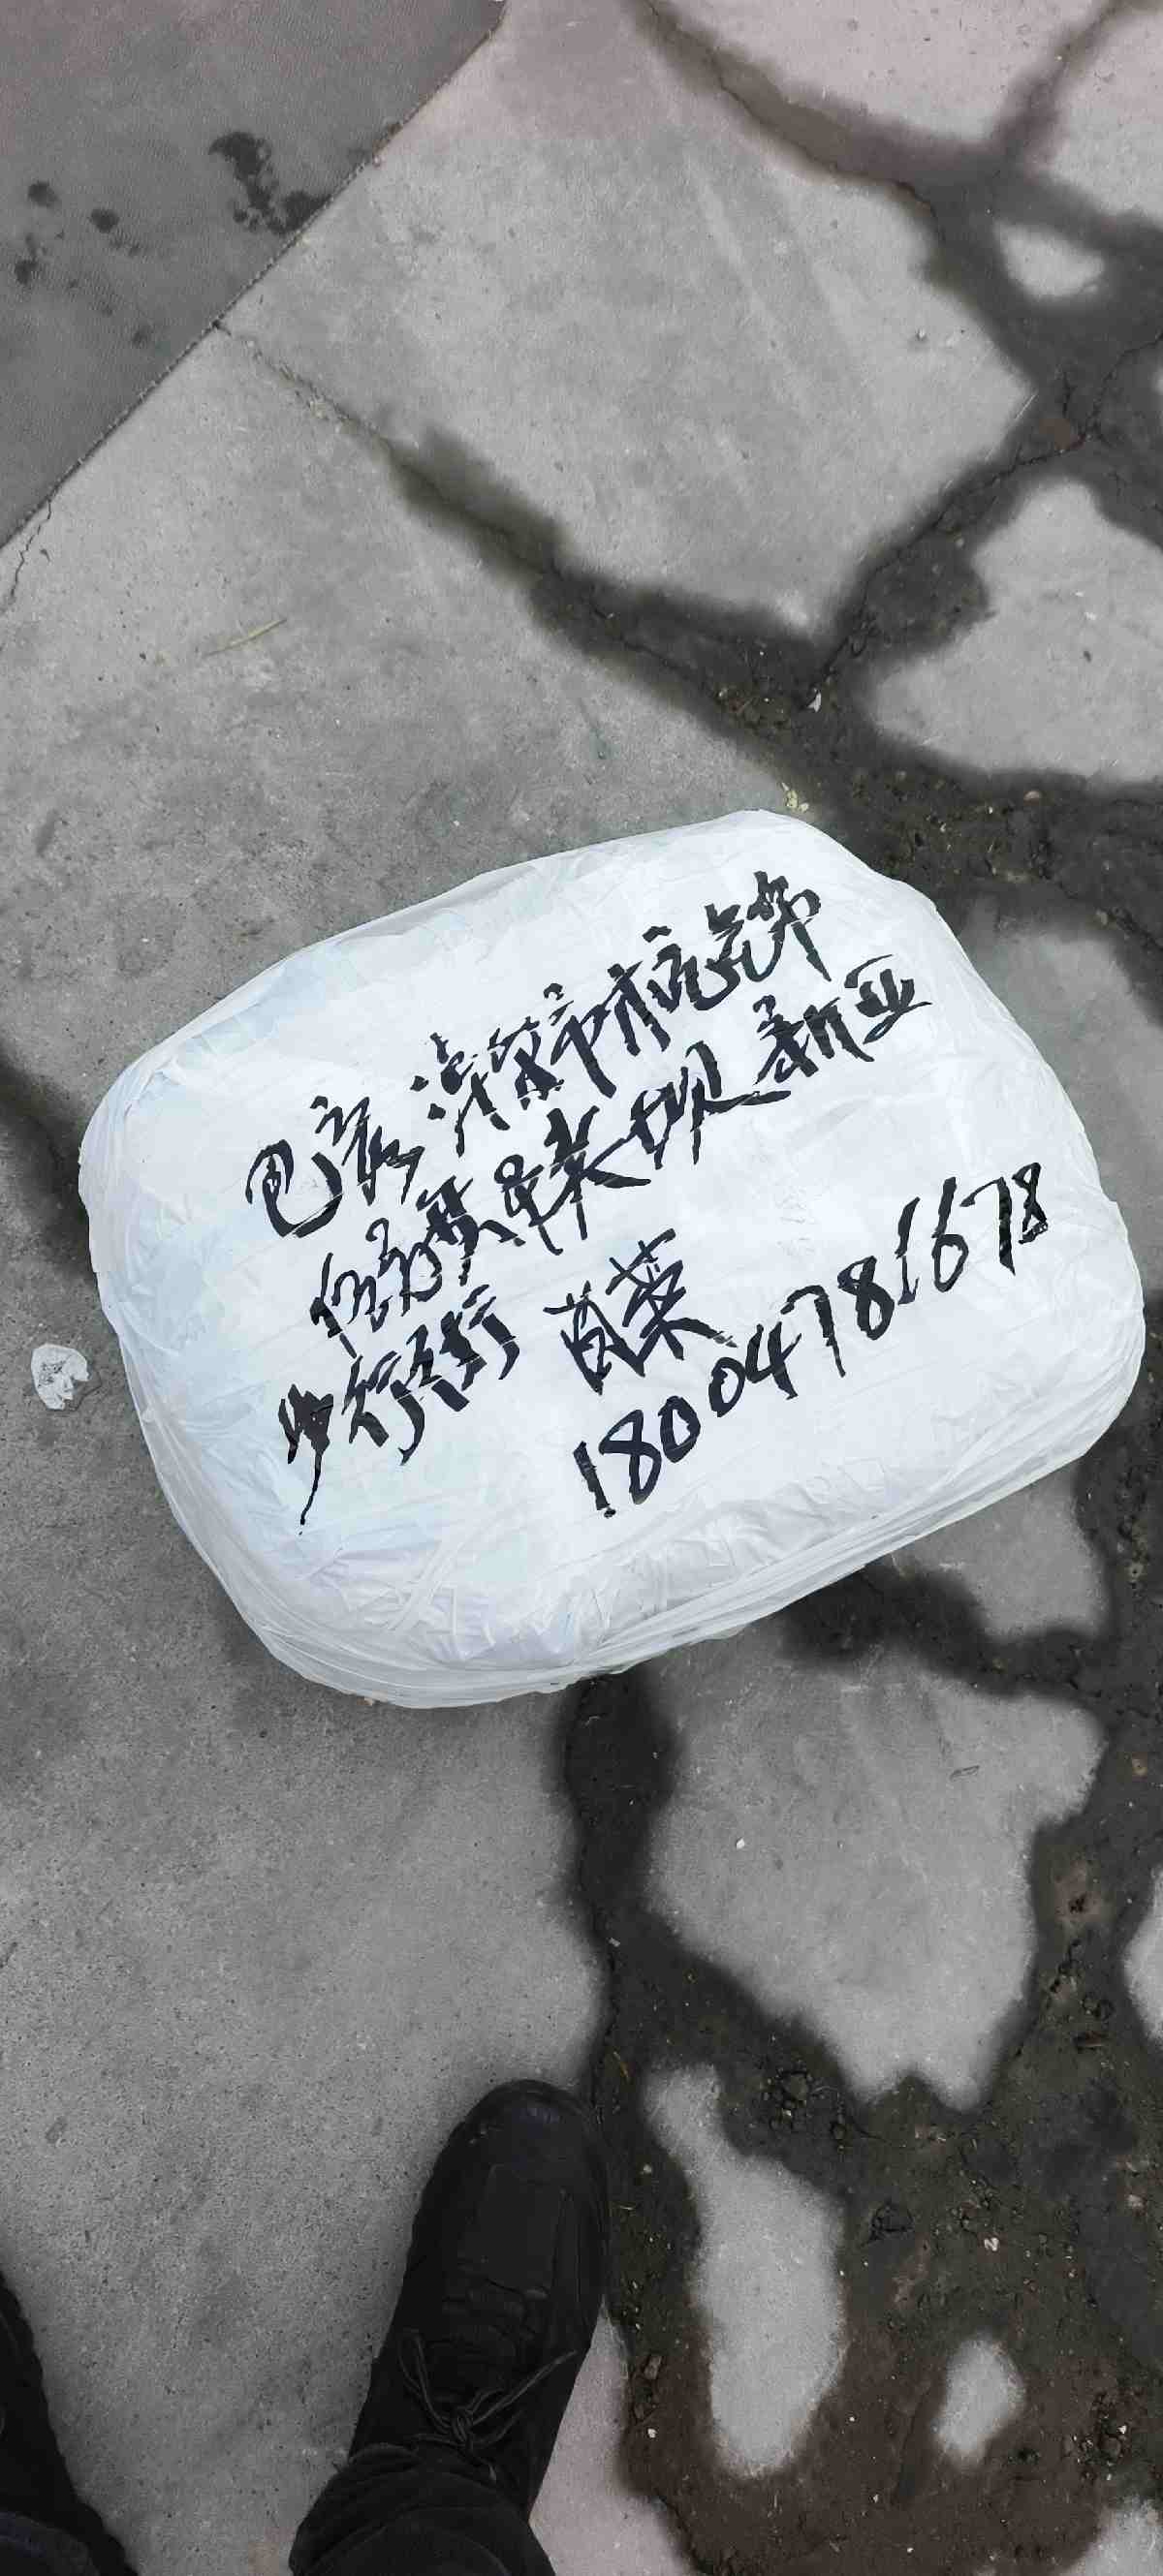 巴彦淖尔市杭锦
后旗陕坝新亚
步行街 菌菜
18004781678